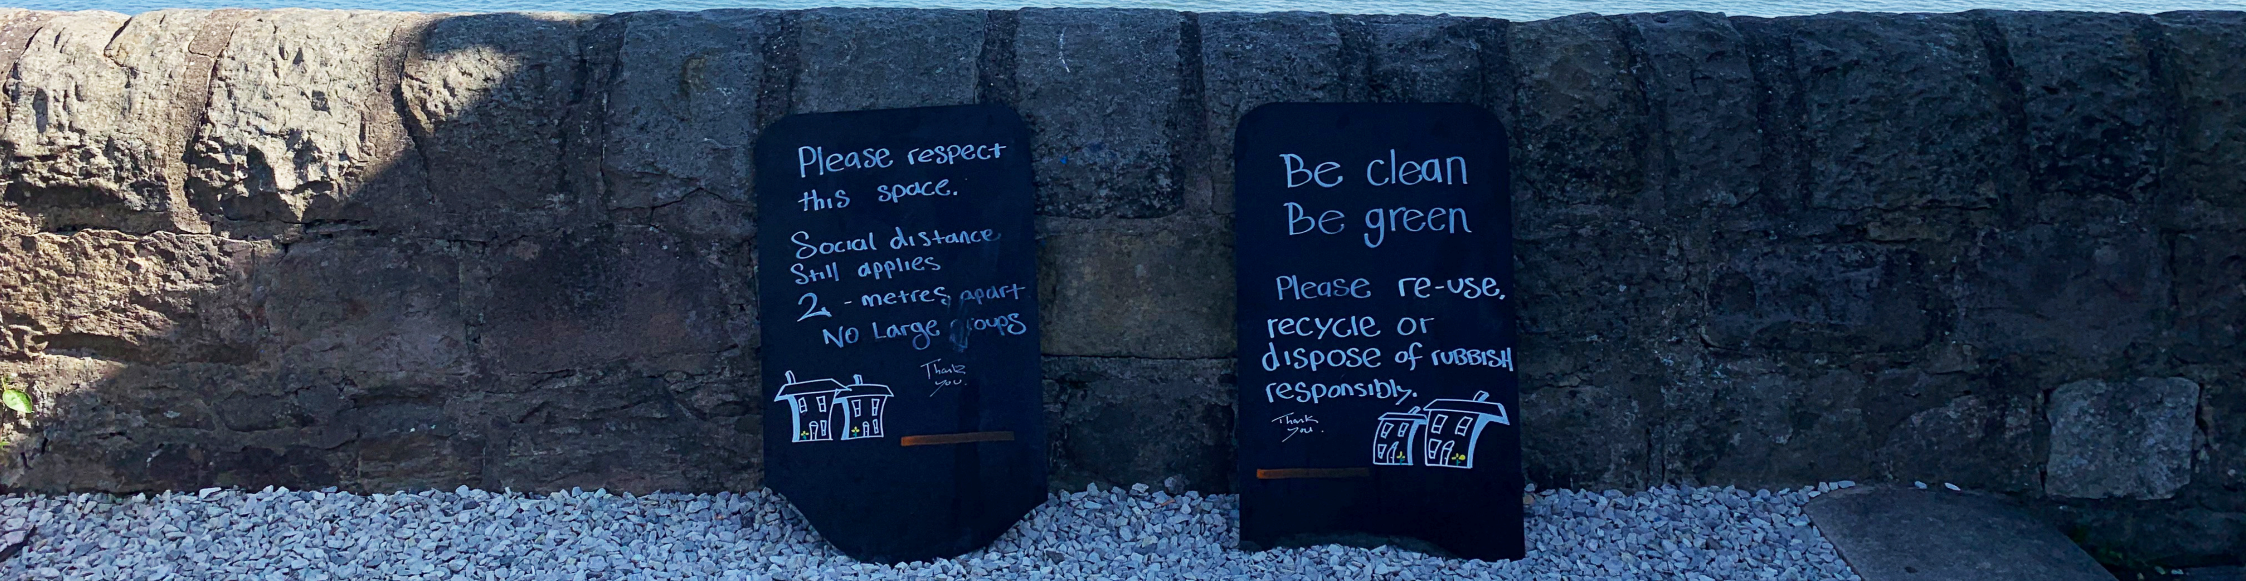 Please respect
this space.
Social distance
Still applies
2 - metres apart
No Large groups
Thank
you.
Be clean
Be green
Please re-use,
recycle or
dispose of RUBBISH
responsibly.
Thank
you.